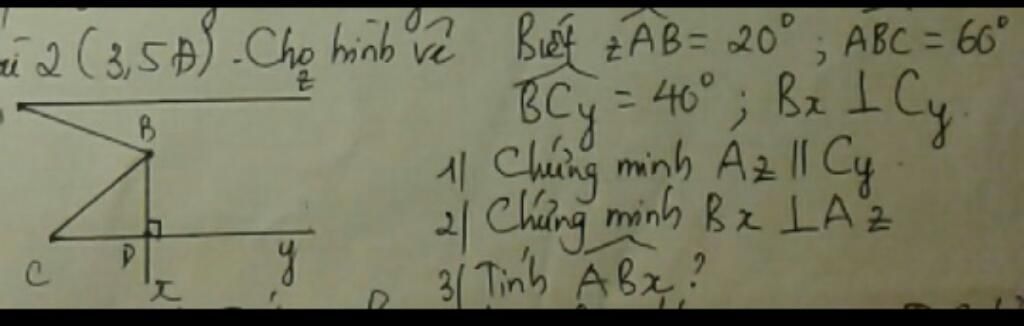 2 (3,5Đ). Cho hình vẽ Biết zAB = 20° ; ABC = 60°
BCy = 40° ; Bx ⊥ Cy.
1/ Chứng minh Az // Cy.
2/ Chứng minh Bx ⊥ Az
3/ Tính ABx ?
z
B
C
D
x
y